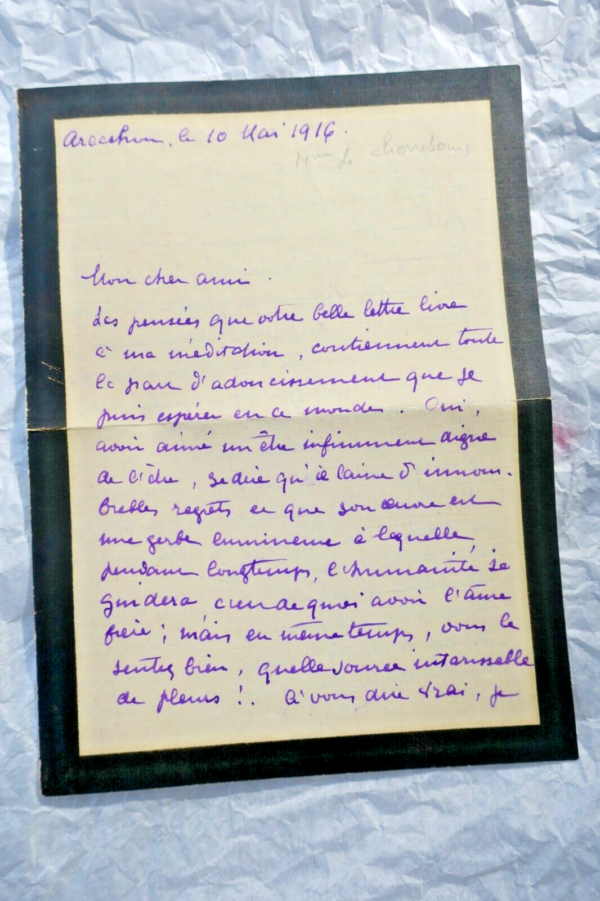 Arcachon, le 10 Mai 1916.
Mme
Mon cher ami.
Les pensées que votre belle lettre livre
à ma méditation, contiennent toute
la part d'adoucissement que je
puis espérer en ce monde. Oui,
avoir aimé un être infiniment digne
de l'être, se dire qu'il laisse d'innom-
brables regrets et que son œuvre est
une gerbe lumineuse à laquelle,
pendant longtemps, l'humanité se
guidera, c'en de quoi avoir l'âme
fière; mais en même temps, vous le
sentez bien, quelle source intarissable
de pleurs!. à vous dire vrai, je